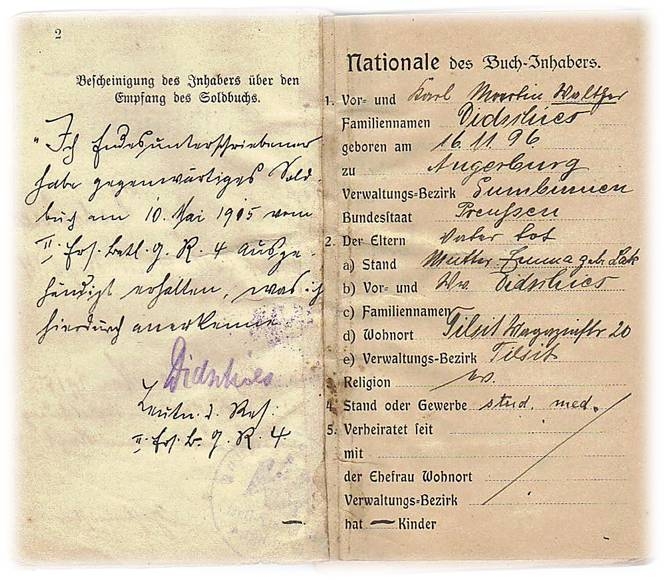 2
Bescheinigung des Inhabers über den
Empfang des Soldbuchs.
"Ich Endesunterschriebener
habe gegenwärtiges Sold
buch am 10. Mai 1915 vom
II. Ers. Batl. g. R. 4 ausge-
händigt erhalten, was ich
hierdurch anerkenne
Didschies
Leutn. d. Res.
II. Ers. B. g. R. 4.
Nationale des Buch-Inhabers.
1. Vor- und Karl Martin Walther
Familiennamen Didschies
geboren am 16.11.96
zu Angerburg
Verwaltungs-Bezirk Gumbinnen
Bundesstaat Preussen
2. Der Eltern Vater tot
a) Stand Mutter Emma geb.
b) Vor- und Ww. Didschies
c) Familiennamen
d) Wohnort Tilsit Magazinstr 20
e) Verwaltungs-Bezirk Tilsit
3. Religion ev.
4. Stand oder Gewerbe stud. med.
5. Verheiratet seit
mit
der Ehefrau Wohnort
Verwaltungs-Bezirk
hat — Kinder